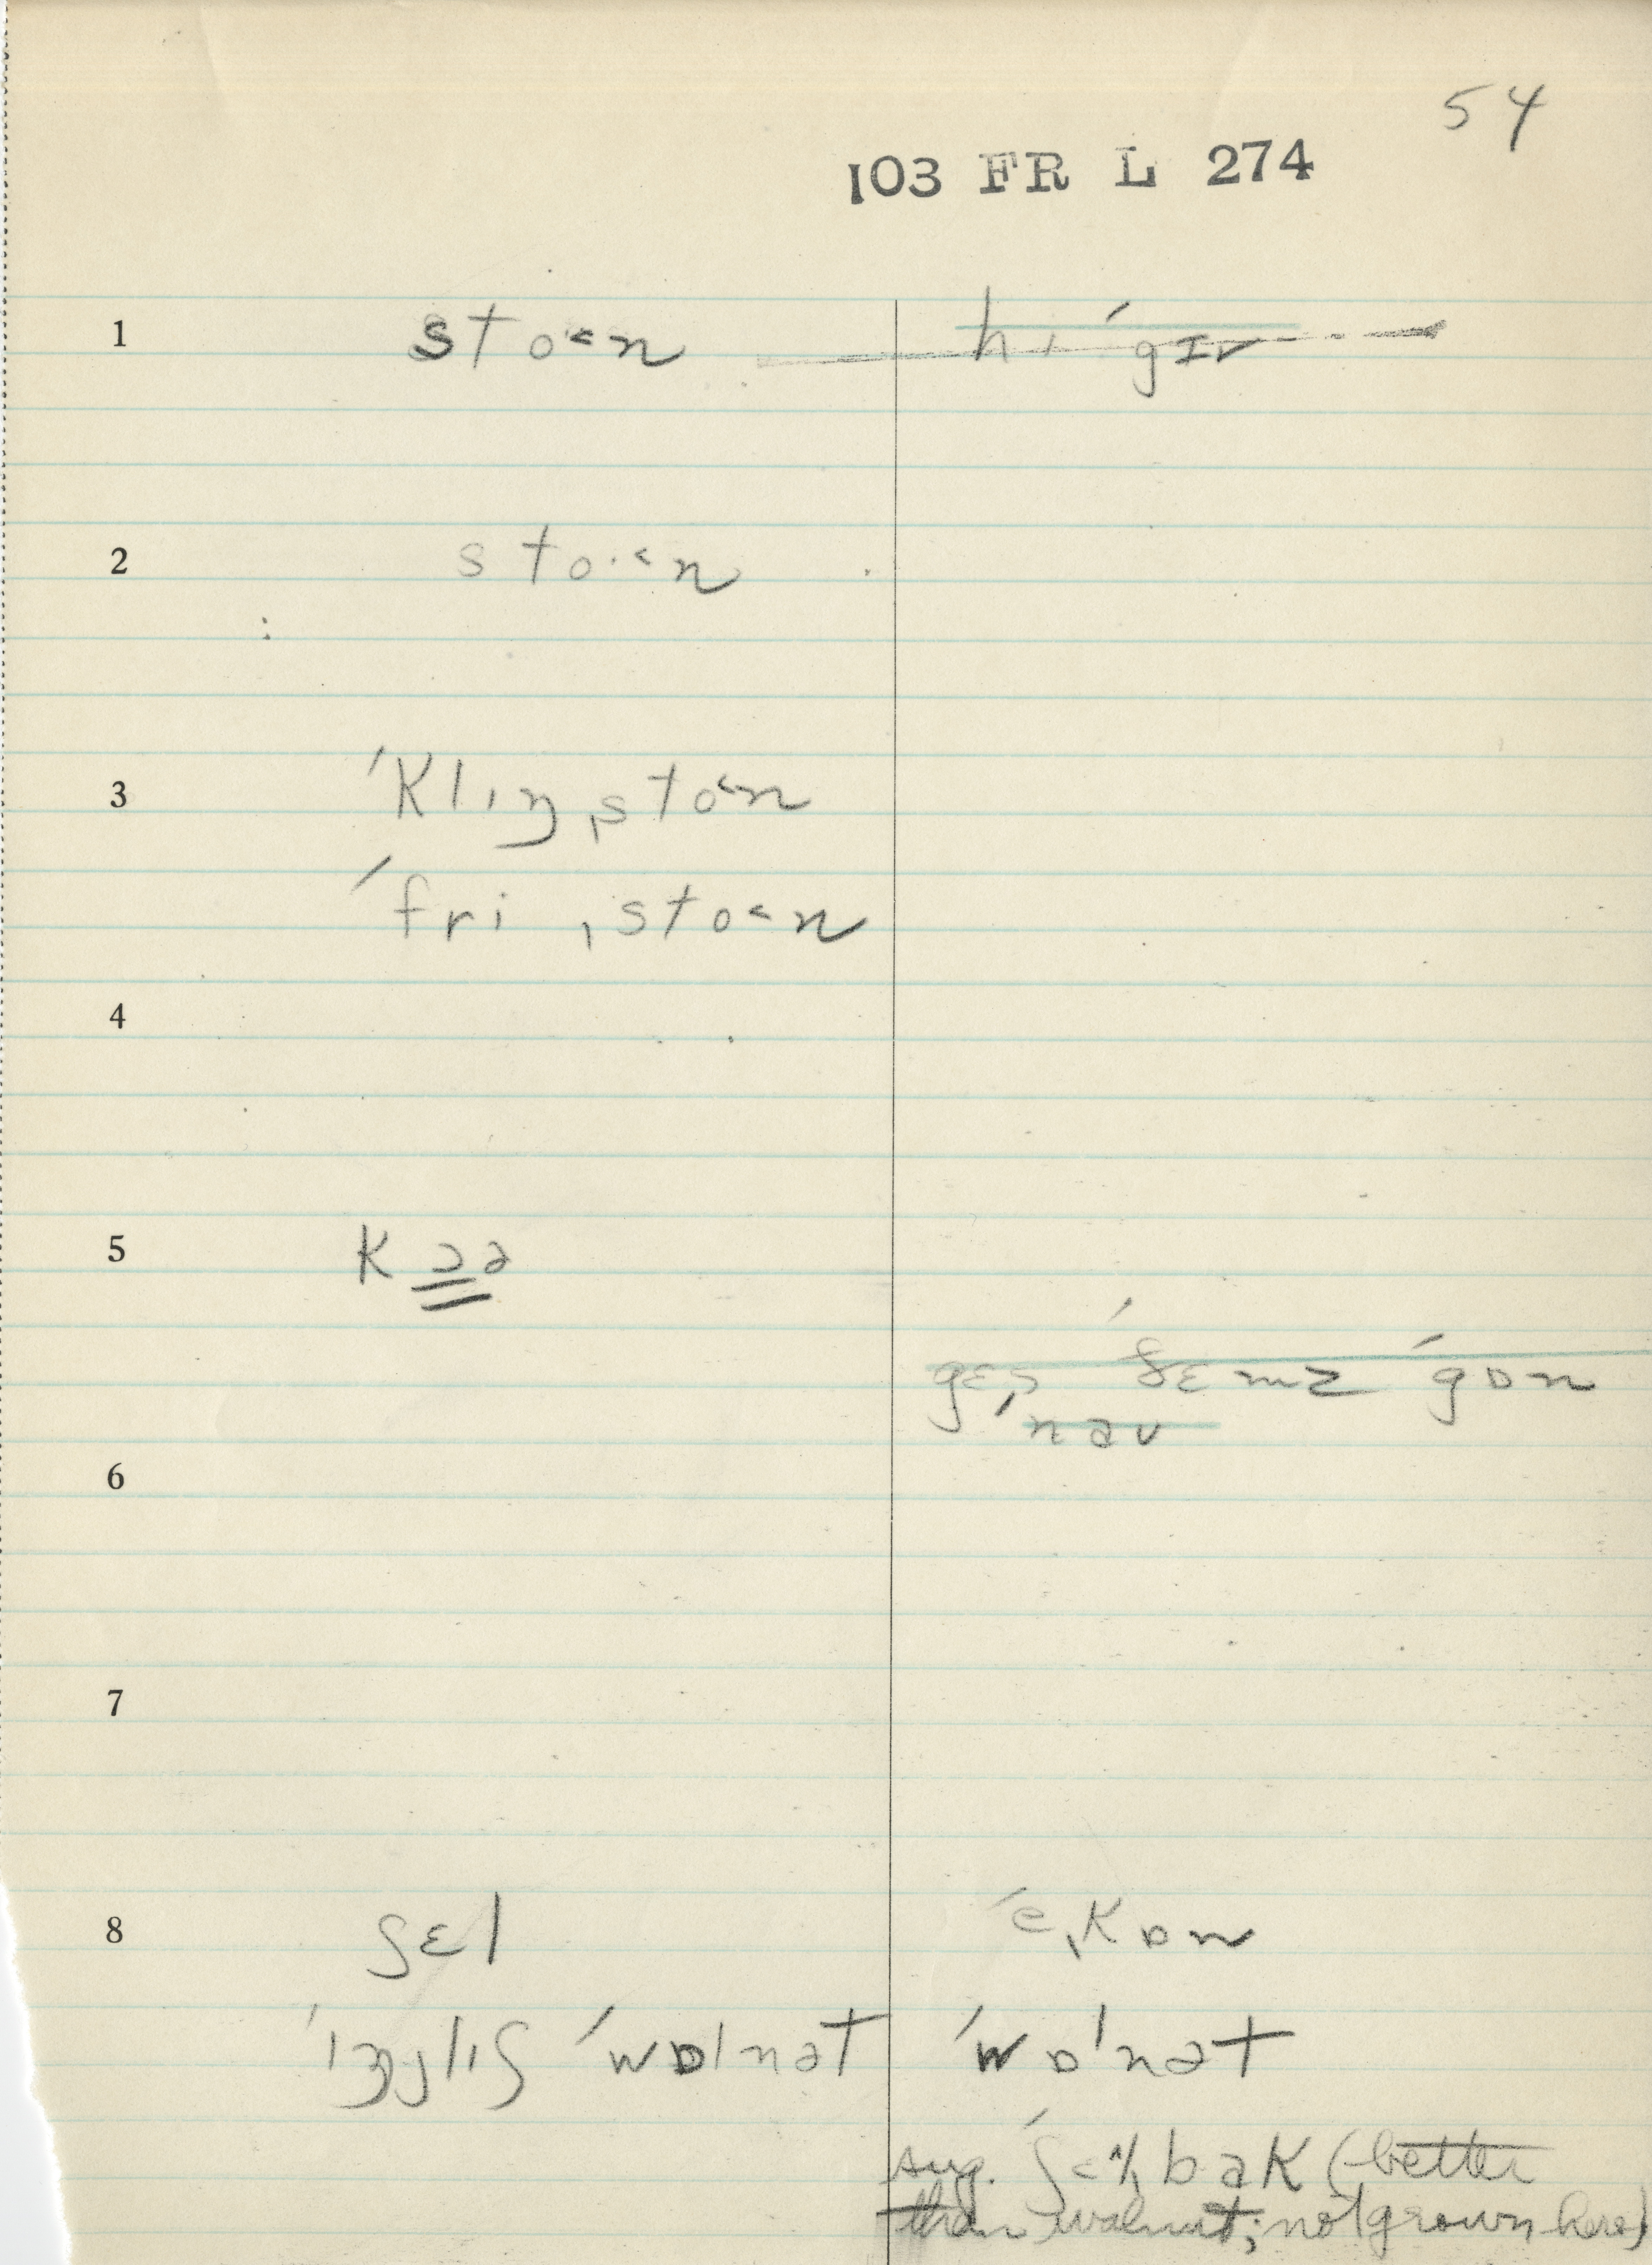 54
103 FR L 274
1 sto˂n hɪ ˈgɪv
2 sto·˂n
3 ˈklɪŋˌsto˂n
ˈfriˌsto˂n
4
5 kɔə
ˈgon
ˈnəʊ
6
7
8 ʃɛl ˈeˌkɒn
ˈɪŋglɪʃ ˈwɒlnət ˈwɒlnət
sug. bək (better
than walnut; not grown here)